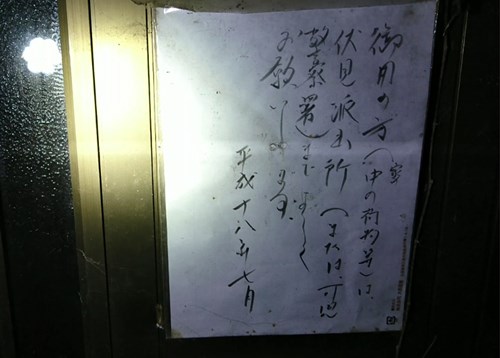 御用の方(室中の荷物等)は、
伏見派出所(または可児
警察署)までよろしく
お願いします
平成十八年七月